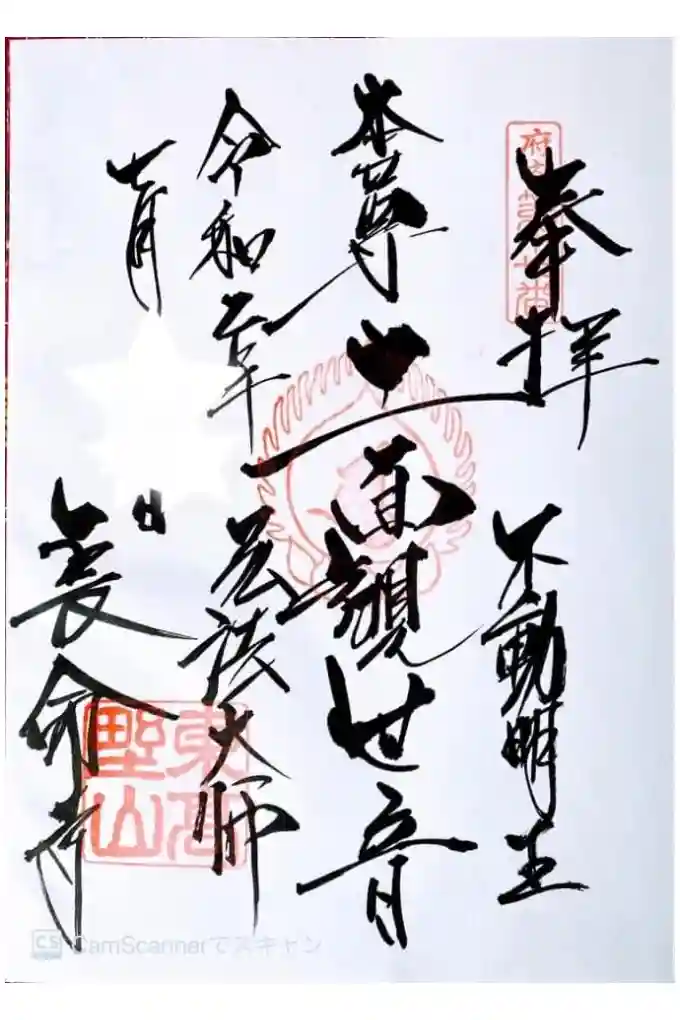 奉拝 不動明王
本尊 十一面観世音
令和 年 弘法大師
七月 日 長命寺
東高野山
CS CamScannerでスキャン